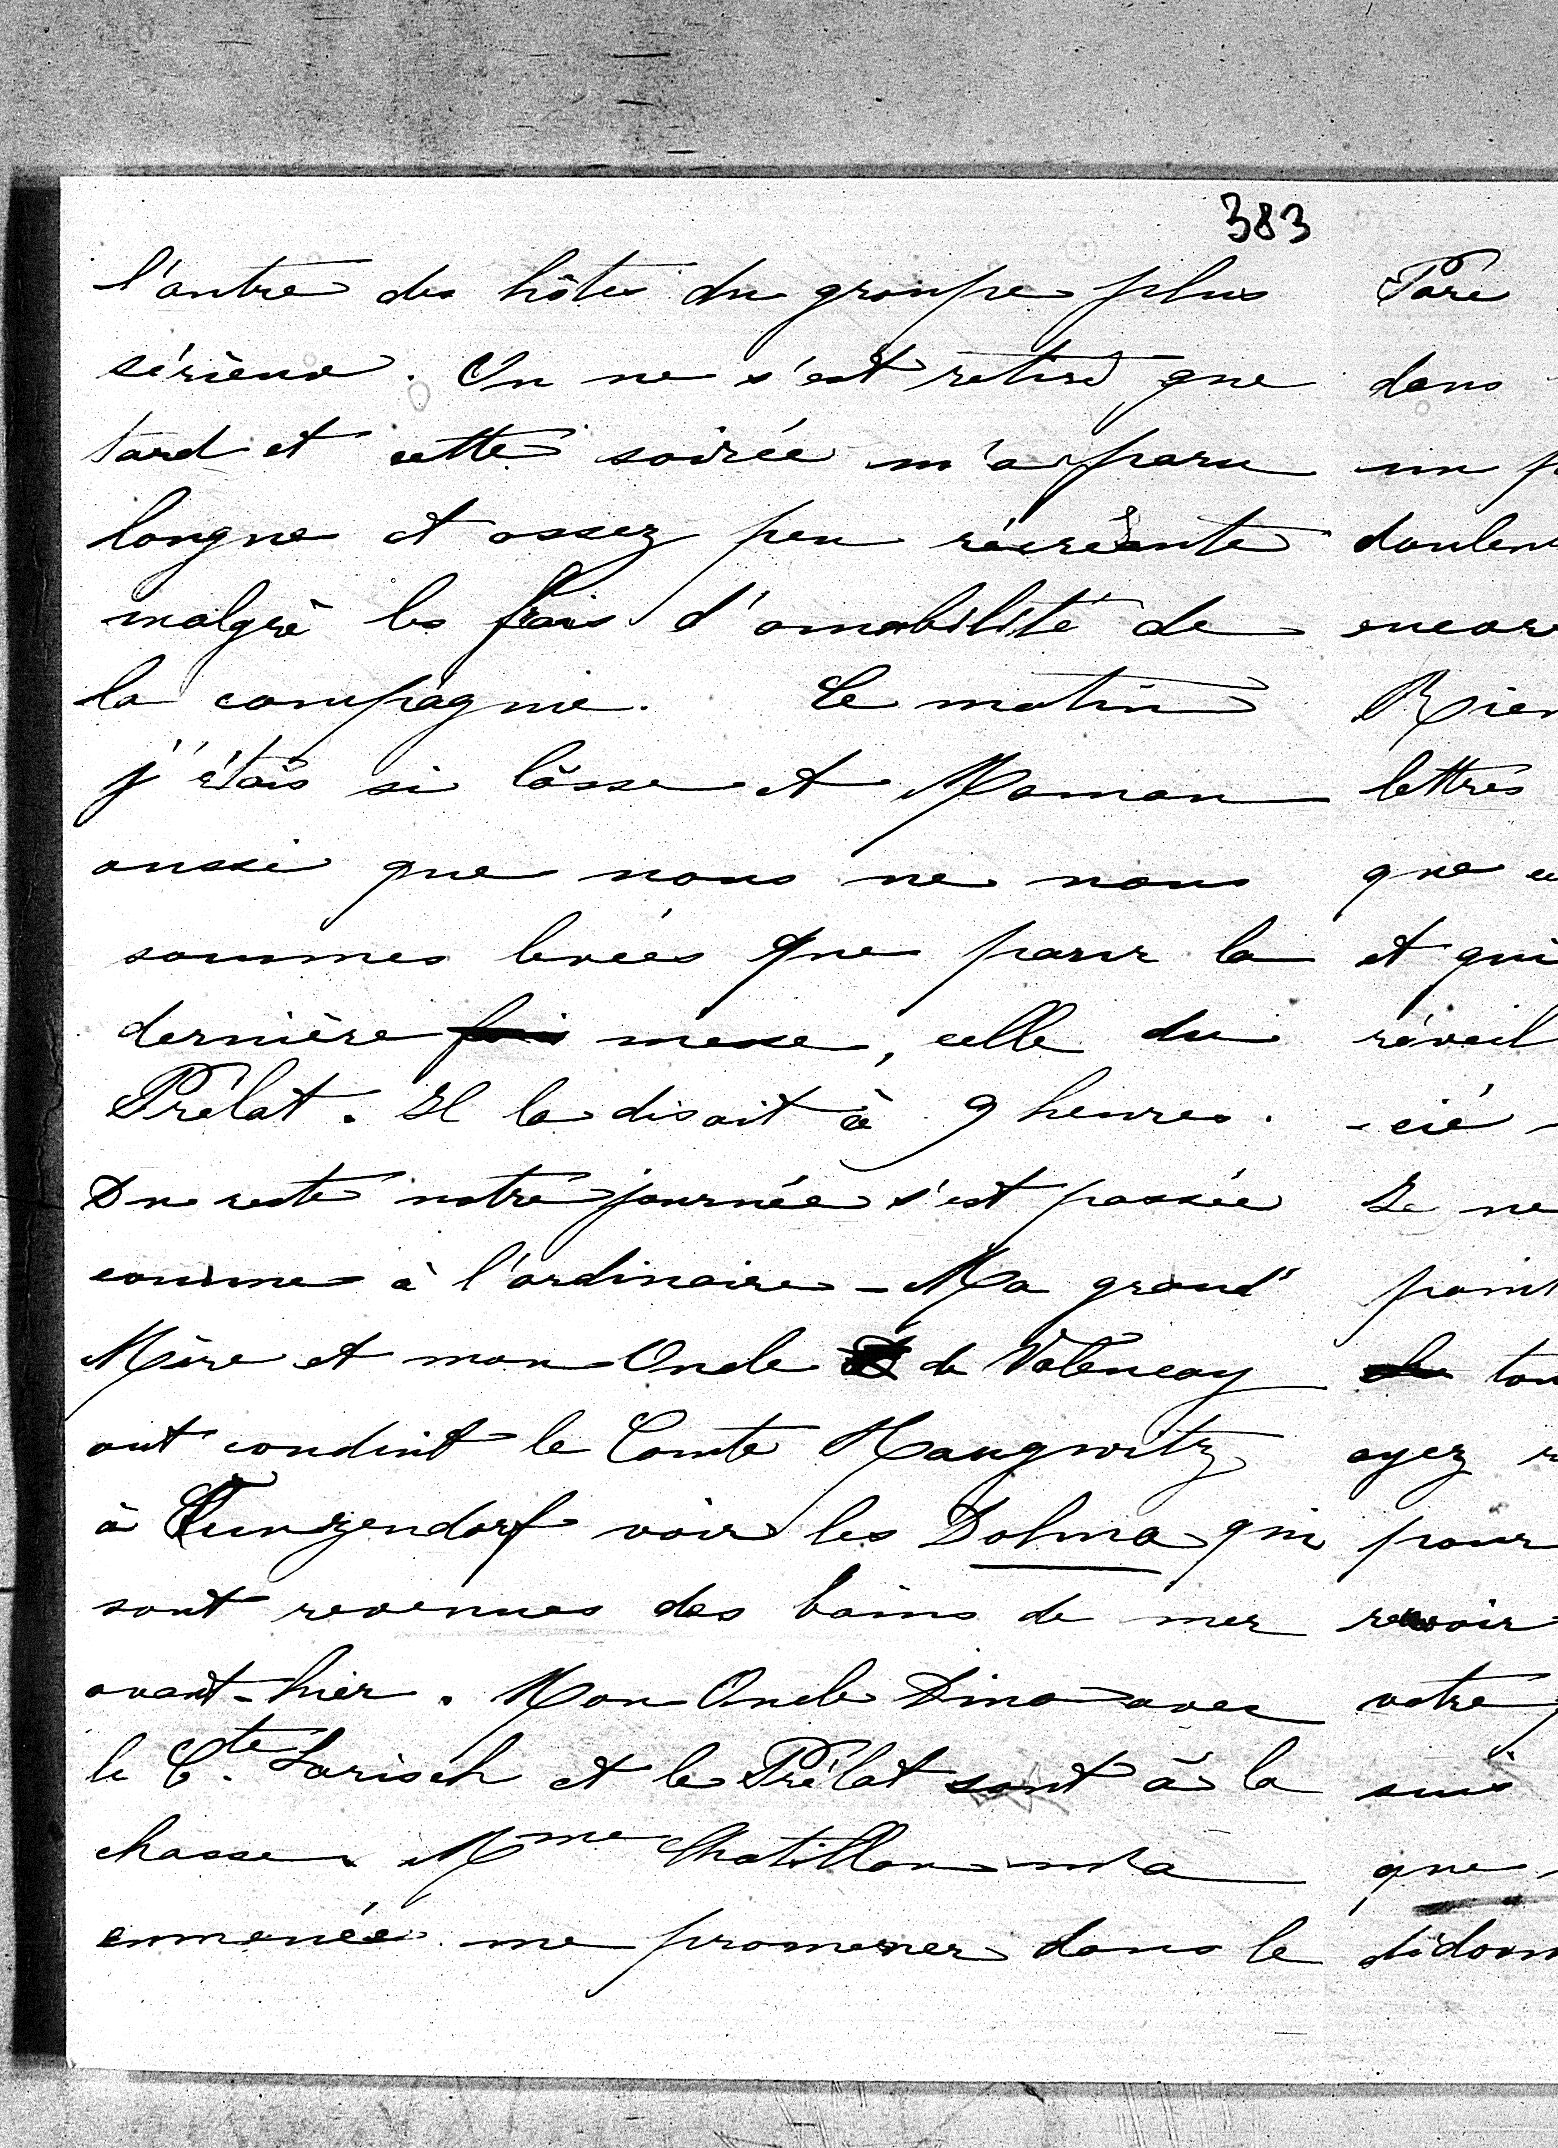 383
l'autre des hôtes du groupe plus
sérieux. On ne s'est retiré que
tard et cette soirée m'a paru
longue et assez peu récréante
malgré les frais d'amabilité de
la compagnie. Ce matin
j'étais si lasse et Maman
aussi que nous ne nous
sommes levées que pour la
dernière fois messe, celle du
Prélat. Il la disait à 9 heures.
Du reste notre journée s'est passée
comme à l'ordinaire - Ma grand'
Mère et mon Oncle de Valencay
ont conduit le Comte Haugwitz
à Kunzendorf voir les Dohna qui
sont revenues des bains de mer
avant-hier. Mon Oncle Dino avec
le Cte. Larisch et le Prélat sont à la
chasse. Mme Chatillon m'a
emmenée me promener dans le
Parc
dans
un
douleu
encore
Rien
lettres
que
et qui
réveil
-cié
Je ne
point
de tou
ayez
pour
revoir
votre
suis
que
didonn